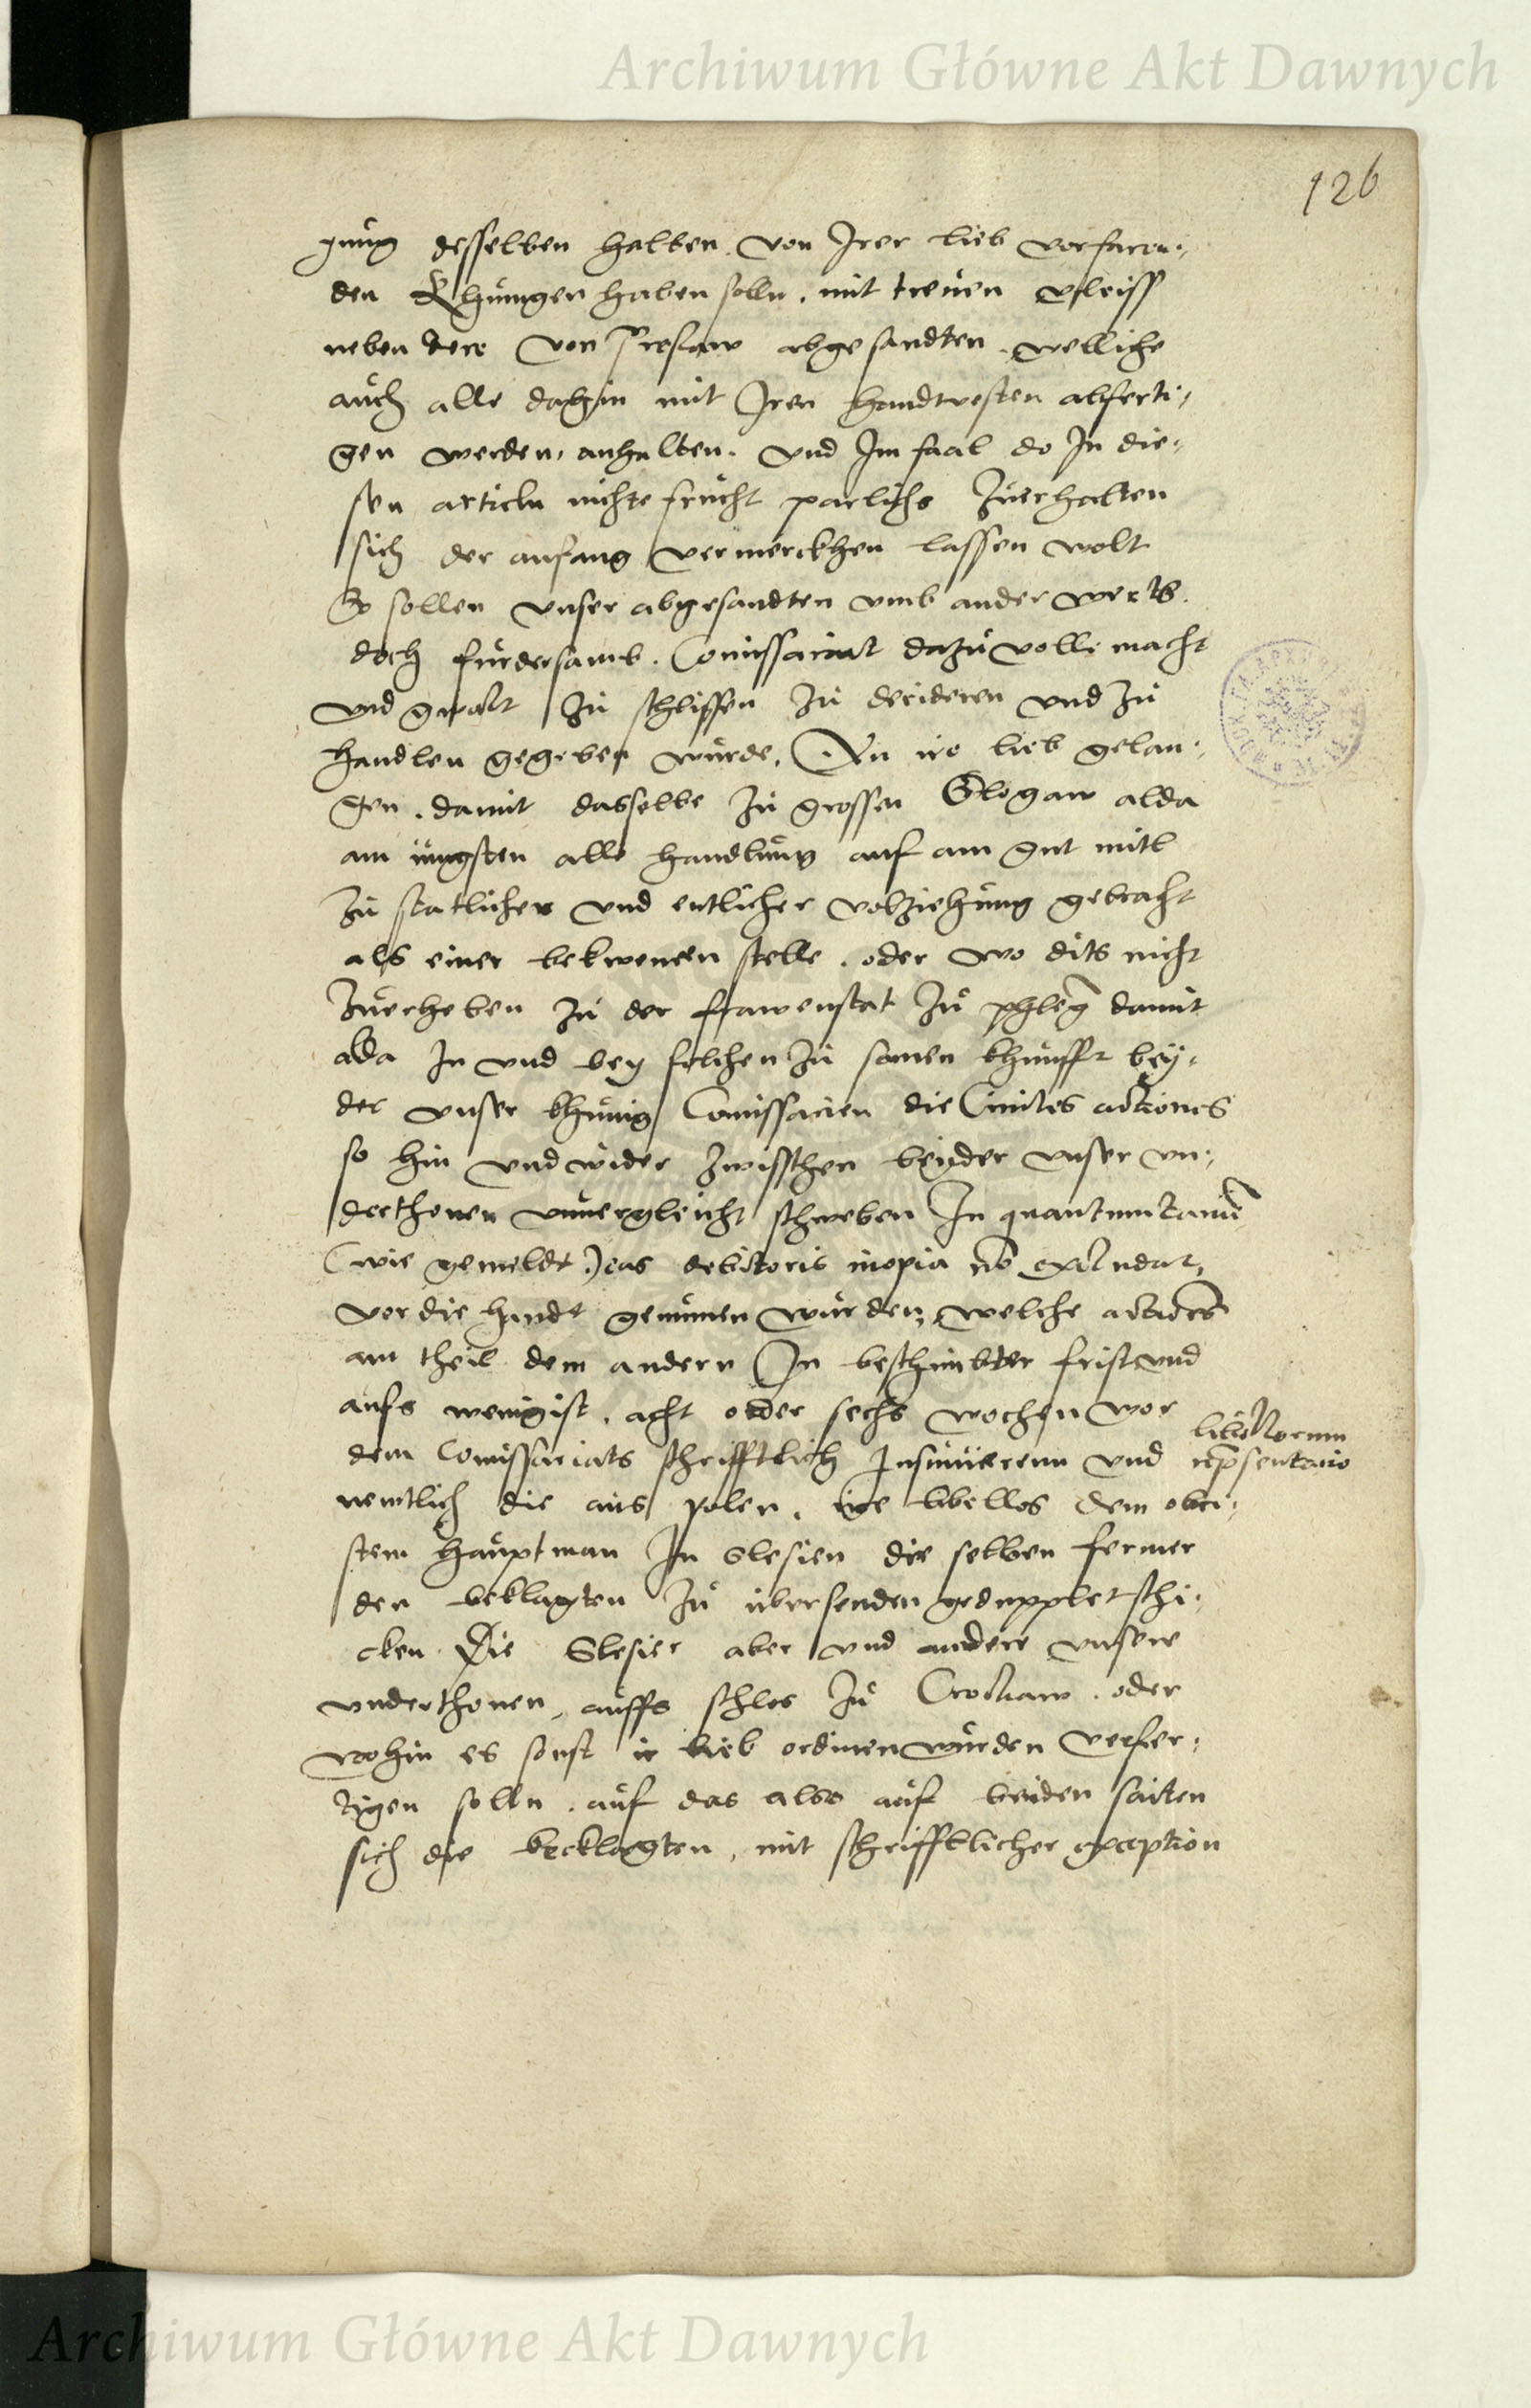 Archiwum Główne Akt Dawnych
126
gung desselben halben von Irer lieb vorfaren,
den Khunigen haben solln, mit treuen vleiss
neben dere von Preslaw abgesandten, welliche
auch alle dahin mit Iren handtvesten abferti,
gen werden, anhalten. Und Im faal do In die,
sen articln nichts frucht parlichs Zuerhalten
sich der anfang vermerckhen lassen wolt
So sollen unser abgesandten umb anderwerts
doch furdersamb. Comissariat dazu volle macht
und gwalt Zu schlissen Zu decideren und Zu
handlen gegeben wurde, An ire lieb gelan,
gen, damit dasselbe Zu grossen Glogaw alda
am iungsten alle handlung auf am gut mitl
Zu statlicher und entlicher volziehung gebracht
als einer bekwemen stelle, oder wo dits nicht
Zuerheben Zu der frawenstat Zu phleg damit
alda In und bey solchen Zu samen khunfft bey,
der unser khunig Comissarien die Ciuiles actiones
so hin und wider Zwisschen beyder unser un,
derthonen unuergleicht schweben In quantum tamen
(wie gemeldt) eas debitoris inopia no excludat,
vor die handt genumen wurden, welche actiones
am theil dem andern In beschimbter frist und
aufs wenigist, acht oder sechs wochen vor
libellorum
dem Comissariats schrifftlich Insinuierenn und repsentatio
nemtlich die aus polen, ire libellos dem obri,
stem hauptman In Slesien die selben ferner
den beklagten Zu ubersenden gedupplet schi,
cken. Die Slesier aber und andere unsere
underthonen, auffs schlos Zu Crockaw, oder
wohin es sonst ir lieb ordinen wurden verfer,
tigen solln, auf das also auf beiden saiten
sich die becklagten, mit schrifftlicher exception
Archiwum Główne Akt Dawnych